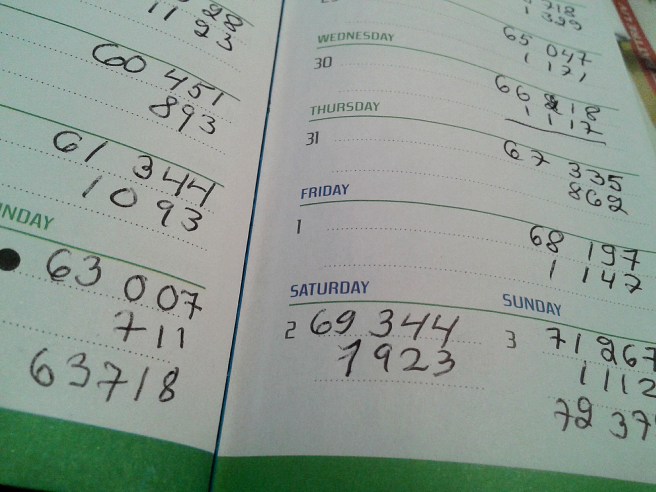 28
1123
60 451
893
61 344
1093
63 007
711
63718
718
WEDNESDAY
30
65 047
1 121
THURSDAY
31
66 218
1 117
67 335
862
FRIDAY
1
68 197
1 147
SATURDAY
2
69 344
1923
SUNDAY
3
71 267
1 112
72 37